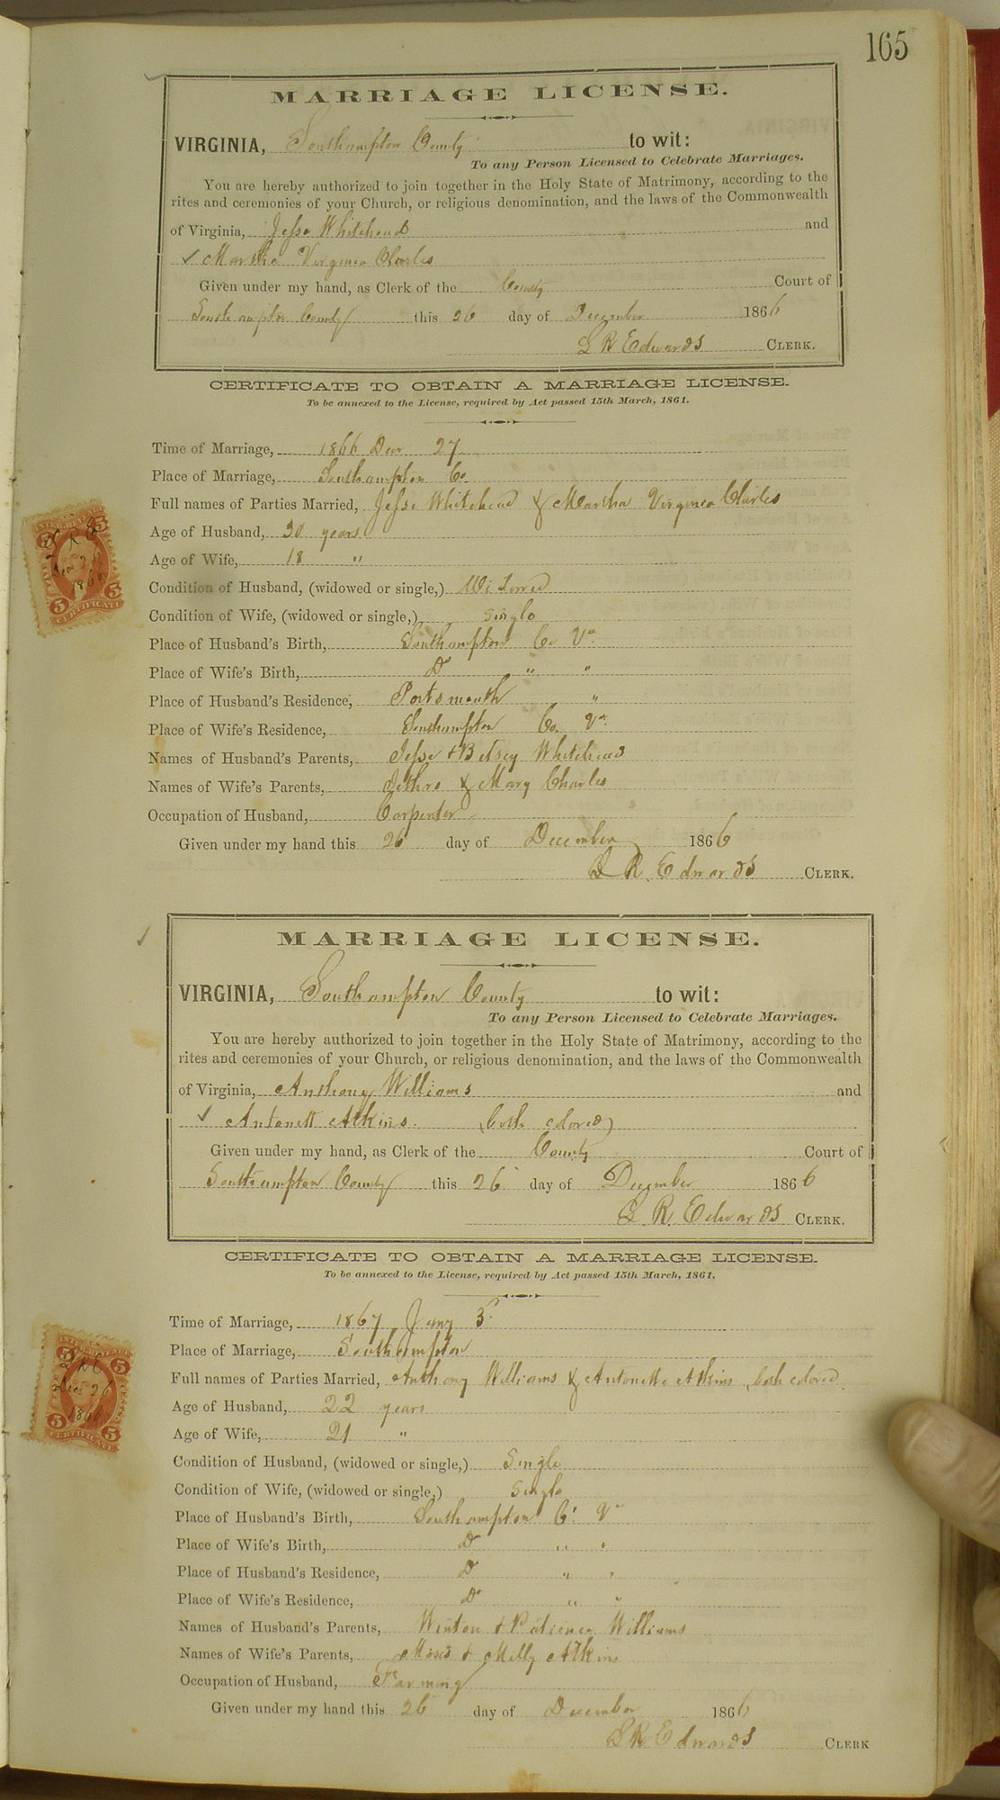 165
MARRIAGE LICENSE.
VIRGINIA, Southampton County to wit:
To any Person Licensed to Celebrate Marriages.
You are hereby authorized to join together in the Holy State of Matrimony, according to the
rites and ceremonies of your Church, or religious denomination, and the laws of the Commonwealth
of Virginia, Jesse Whitehead and
Martha Virginia Charles
Given under my hand, as Clerk of the County Court of
Southampton County this 26 day of December 1866
L R Edwards CLERK.
CERTIFICATE TO OBTAIN A MARRIAGE LICENSE.
To be annexed to the License, required by Act passed 15th March, 1861.
Time of Marriage, 1866 Dec 27
Place of Marriage, Southampton Co.
Full names of Parties Married, Jesse Whitehead & Martha Virginia Charles
Age of Husband, 30 years
Age of Wife, 18 "
Condition of Husband, (widowed or single,) Widowed
Condition of Wife, (widowed or single,) Single
Place of Husband's Birth, Southampton Co Va
Place of Wife's Birth, Do " "
Place of Husband's Residence, Portsmouth "
Place of Wife's Residence, Southampton Co. Va.
Names of Husband's Parents, Jesse & Betsey Whitehead
Names of Wife's Parents, Jethro & Mary Charles
Occupation of Husband, Carpenter
Given under my hand this 26 day of December 1866
L R. Edwards CLERK.
MARRIAGE LICENSE.
VIRGINIA, Southampton County to wit:
To any Person Licensed to Celebrate Marriages.
You are hereby authorized to join together in the Holy State of Matrimony, according to the
rites and ceremonies of your Church, or religious denomination, and the laws of the Commonwealth
of Virginia, Anthony Williams and
Antonett Atkins. (both colored)
Given under my hand, as Clerk of the County Court of
Southampton County this 26 day of December 1866
L R. Edwards CLERK.
CERTIFICATE TO OBTAIN A MARRIAGE LICENSE.
To be annexed to the License, required by Act passed 15th March, 1861.
Time of Marriage, 1867 Jany 3
Place of Marriage, Southampton
Full names of Parties Married, Anthony Williams & Antonette Atkins both colored
Age of Husband, 22 years
Age of Wife, 21 "
Condition of Husband, (widowed or single,) Single
Condition of Wife, (widowed or single,) Single
Place of Husband's Birth, Southampton Co Va
Place of Wife's Birth, Do " "
Place of Husband's Residence, Do " "
Place of Wife's Residence, Do " "
Names of Husband's Parents, Winton & Patience Williams
Names of Wife's Parents, Moses & Milly Atkins
Occupation of Husband, Farming
Given under my hand this 26 day of December 1866
L R. Edwards CLERK